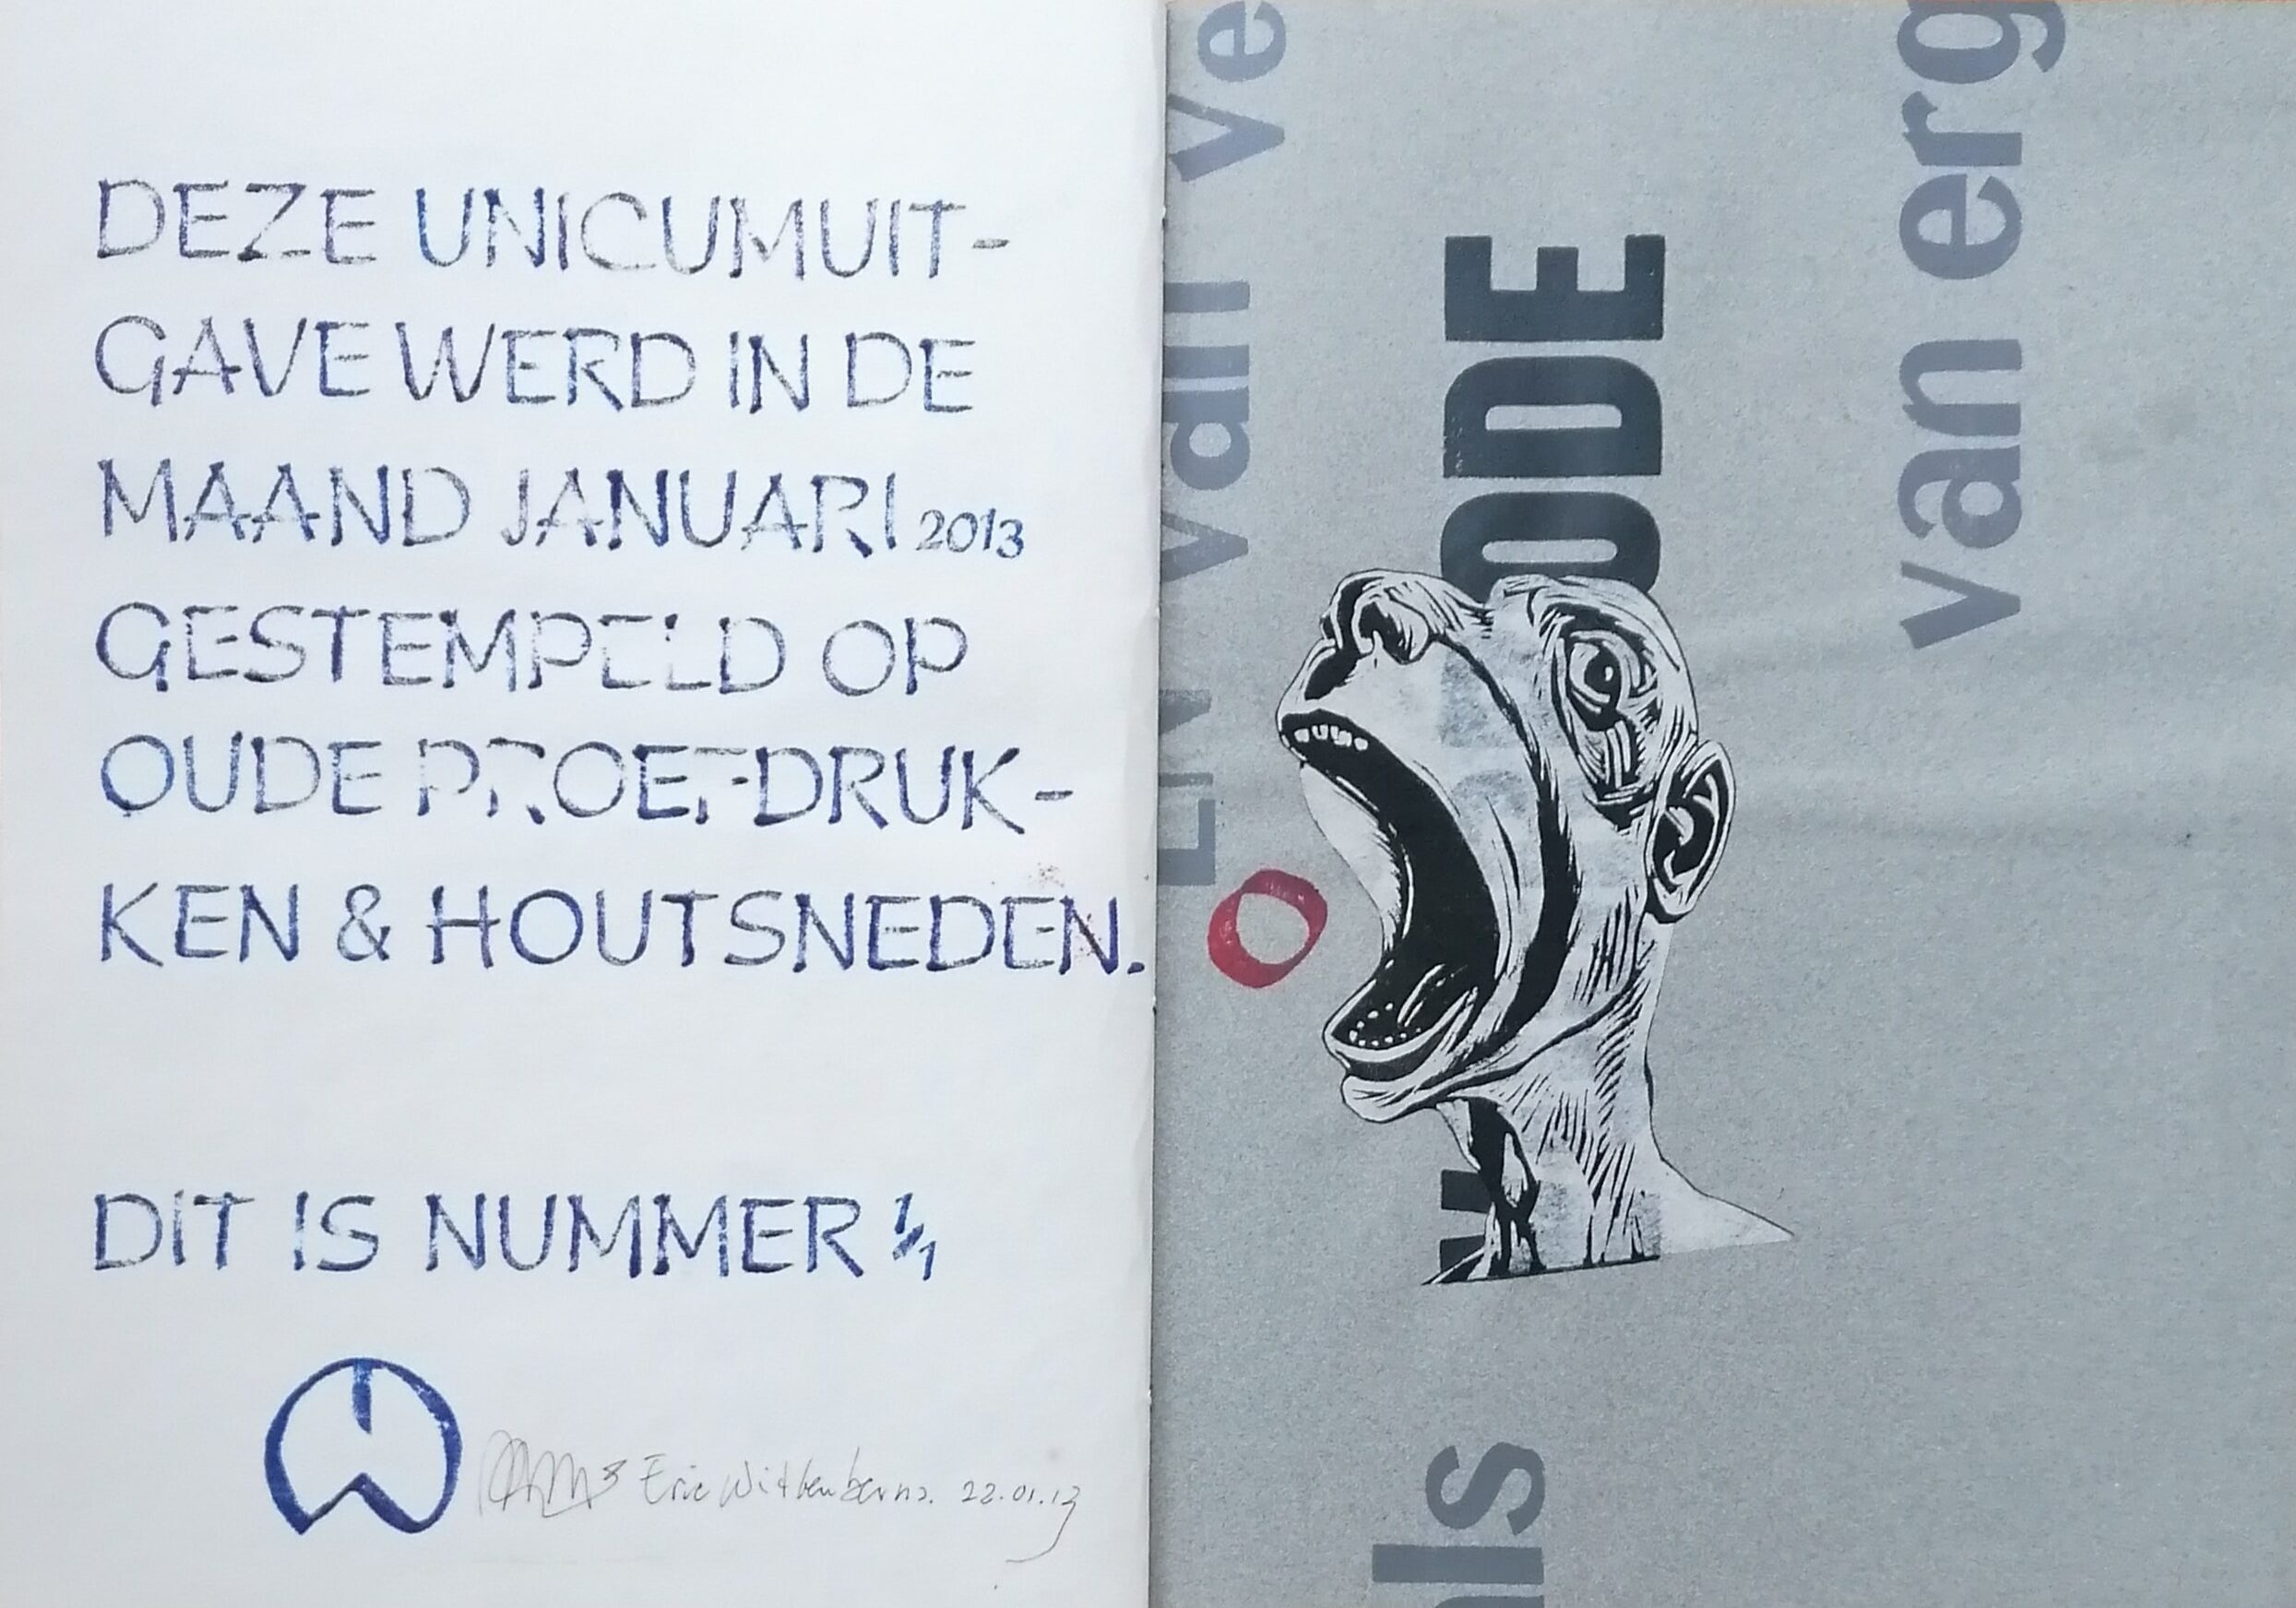 DEZE UNICUMUIT-
GAVE WERD IN DE
MAAND JANUARI 2013
GESTEMPELD OP
OUDE PROEFDRUK-
KEN & HOUTSNEDEN.
DIT IS NUMMER 1/1
Eric 22.01.13
ve
van
EN
O
ODE
van erg
ls